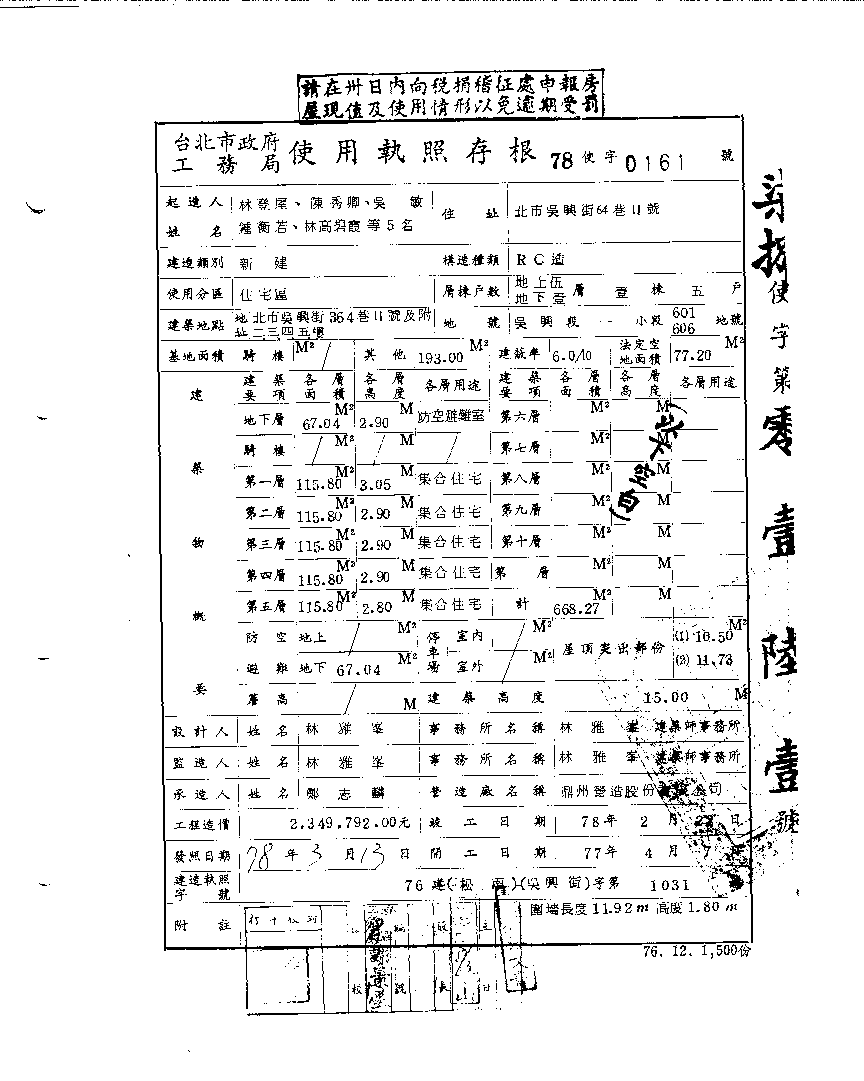 請在卅日內向稅捐稽征處申報房
屋現值及使用情形以免逾期受罰
台北市政府
工務局 使用執照存根 78 使字 0161 號
起造人 林登 、陳秀卿、吳 敏
姓名 鍾衡若、林高 霞等5名 住址 北市吳興街64巷11號
建造類別 新建 構造種類 RC造
使用分區 住宅區 層棟戶數 地上伍 地下壹 層 壹棟 五戶
建築地點 地北市吳興街364巷11號及附
址二三四五樓 地號 吳興段一小段 601 606 地號
基地面積 騎樓 M² / 其他 193.00 M² 建蔽率 6.0/10 法定空地面積 77.20 M²
建築要項 各層面積 各層高度 各層用途 建築要項 各層面積 各層高度 各層用途
地下層 67.04 M² 2.90 M 防空避難室 第六層 M² M
騎樓 / M² / M / 第七層 M² M
第一層 115.80 M² 3.05 M 集合住宅 第八層 M² M
第二層 115.80 M² 2.90 M 集合住宅 第九層 M² M
第三層 115.80 M² 2.90 M 集合住宅 第十層 M² M
第四層 115.80 M² 2.90 M 集合住宅 第 層 M² M
第五層 115.80 M² 2.80 M 集合住宅 計 668.27 M² M
(以下空白)
建築物概要
防空 地上 / M² 停車場 室內 / M² 屋頂突出部份 (1) 10.50 M²
避難 地下 67.04 M² 室外 M² (2) 11.73
簷高 / M 建築高度 15.00 M
設計人 姓名 林雅峯 事務所名稱 林雅峯建築師事務所
監造人 姓名 林雅峯 事務所名稱 林雅峯建築師事務所
承造人 姓名 鄭志麟 營造廠名稱 鼎州營造股份有限公司
工程造價 2,349,792.00元 竣工日期 78年2月 日
發照日期 78年3月13日 開工日期 77年4月7日
建造執照
字號 76建(松南)(吳興街)字第 1031
附註 圍墻長度11.92m高度1.80m
76.12.1,500份
柒捌使字第零壹陸壹號